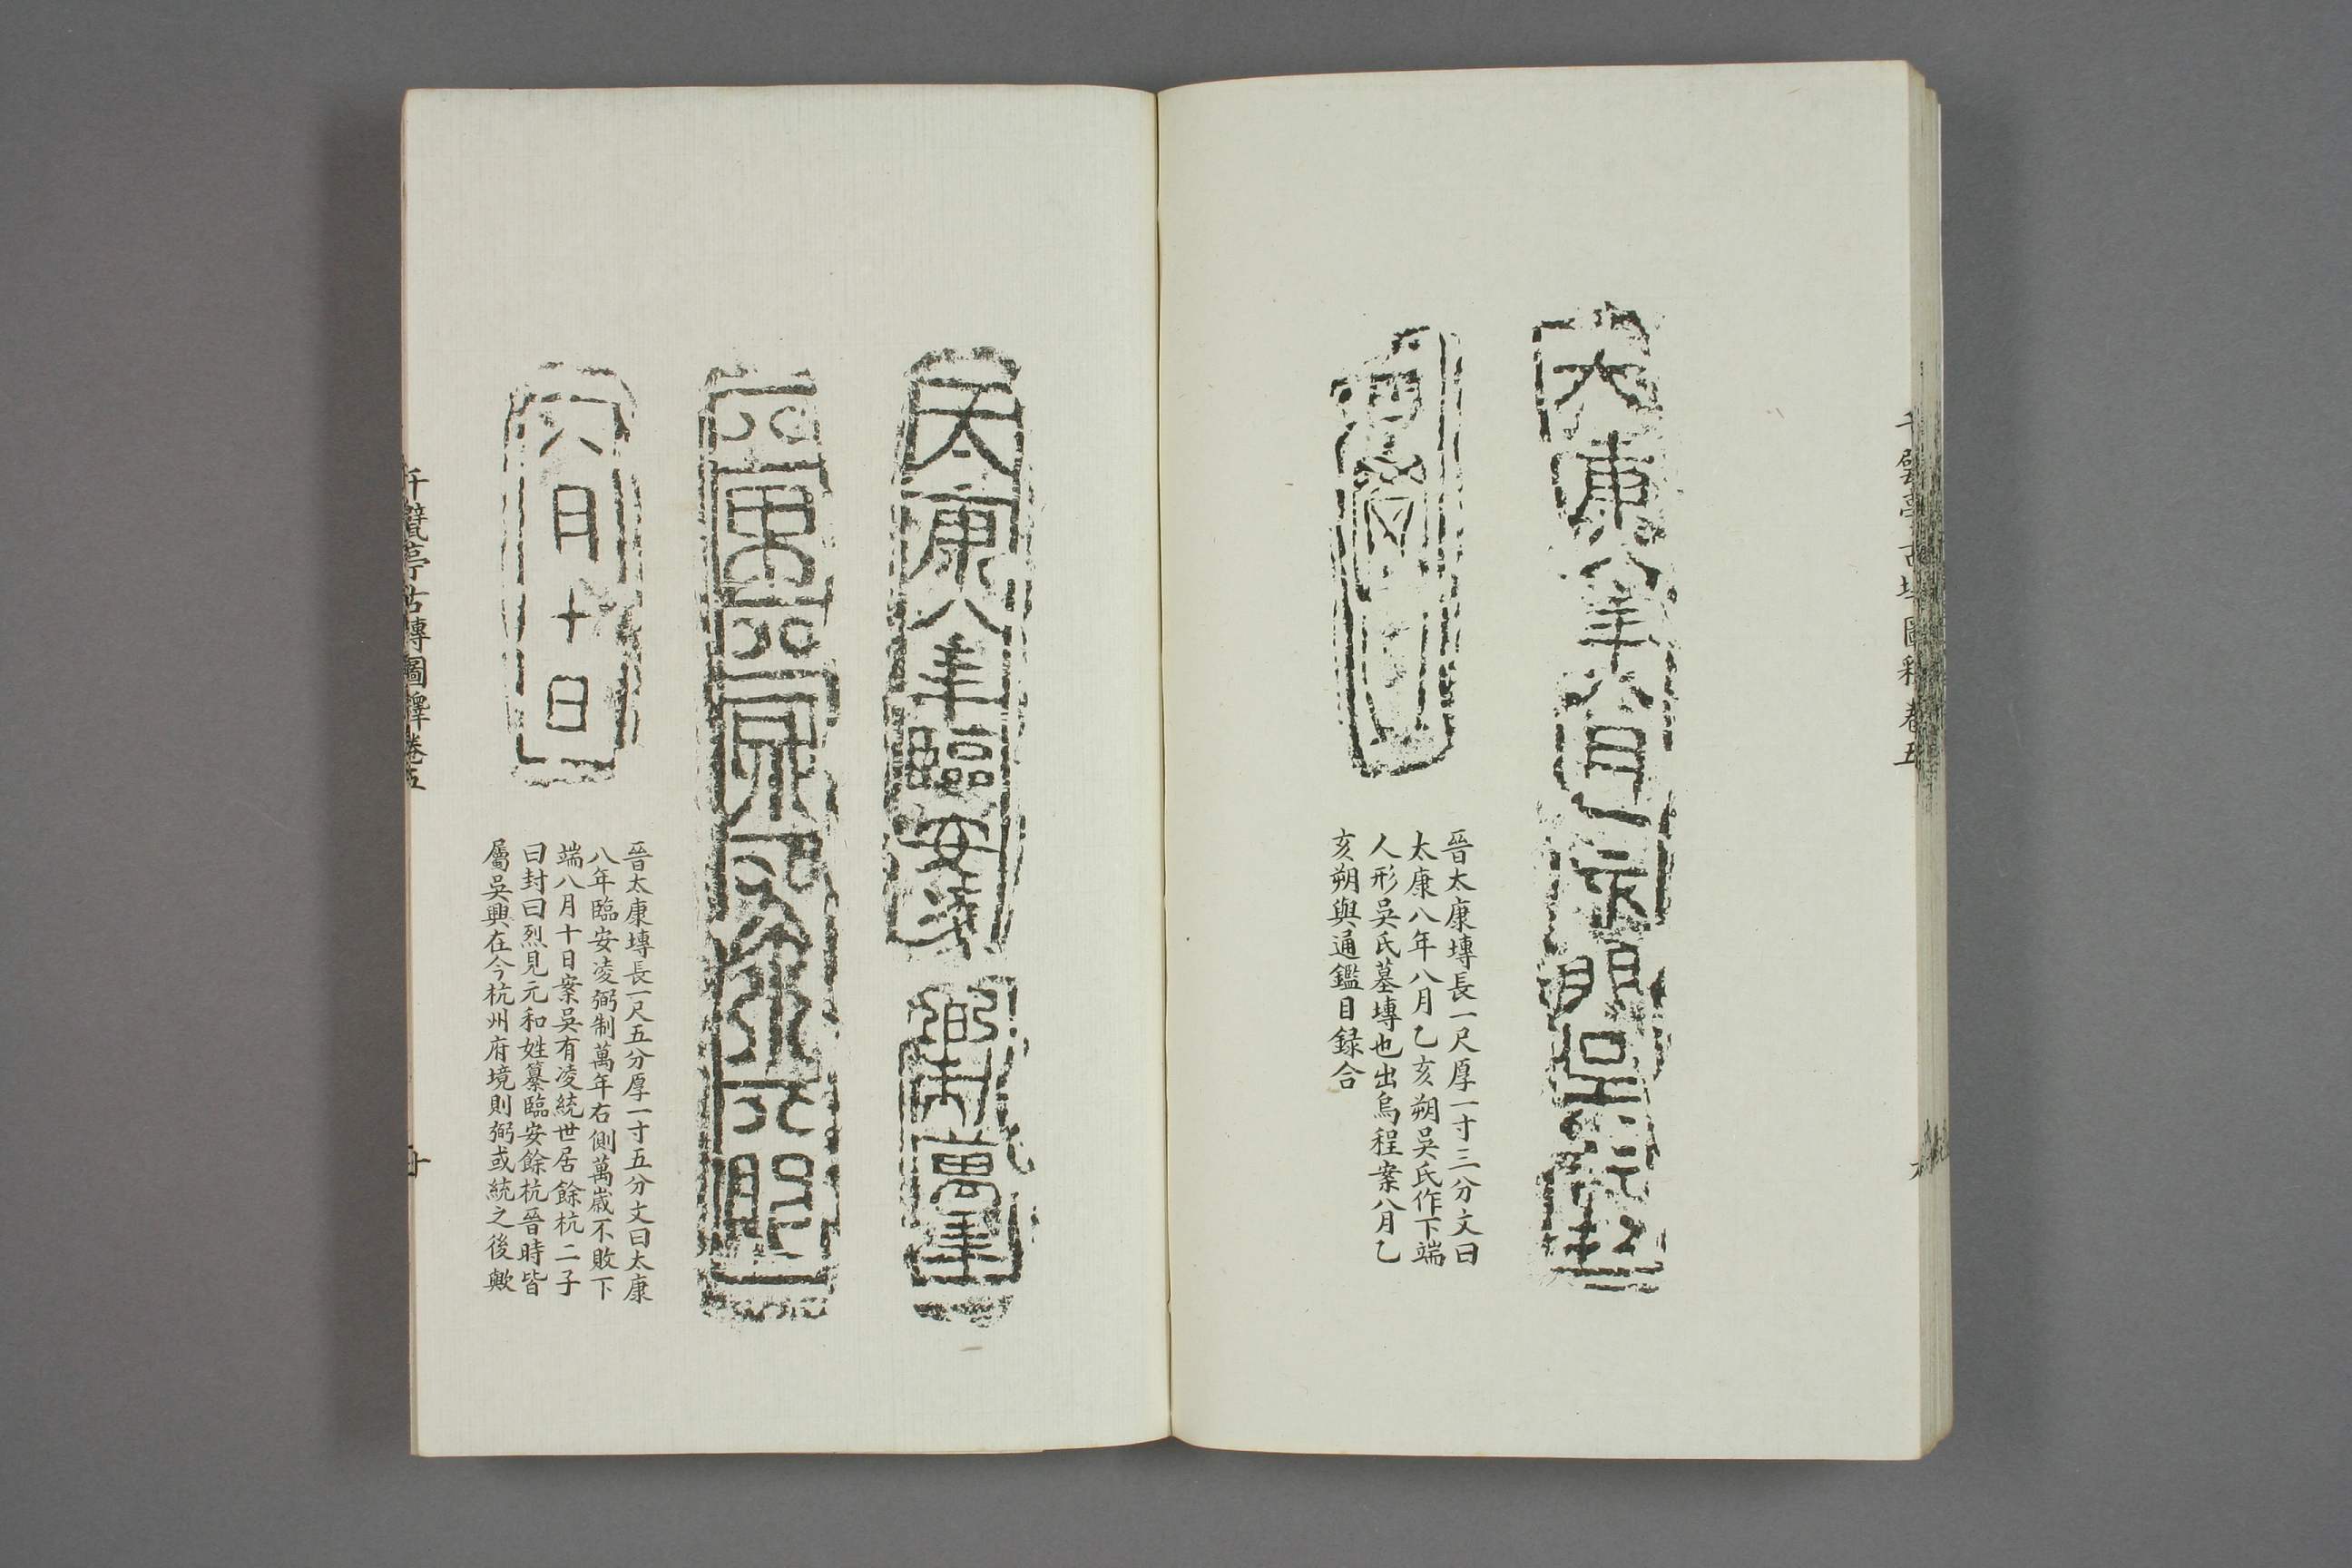 太康八年八月乙亥朔吳氏作
晉太康塼長一尺厚一寸三分文曰
太康八年八月乙亥朔吳氏作下端
人形吳氏墓塼也出烏程案八月乙
亥朔與通鑑目録合
太康八年臨安凌弼制萬年
萬歲不敗
八月十日
晉太康塼長一尺五分厚一寸五分文曰太康
八年臨安凌弼制萬年右側萬歲不敗下
端八月十日案吳有凌統世居餘杭二子
曰封曰烈見元和姓纂臨安餘杭晉時皆
屬吳興在今杭州府境則弼或統之後歟
千甓亭古塼圖釋卷五